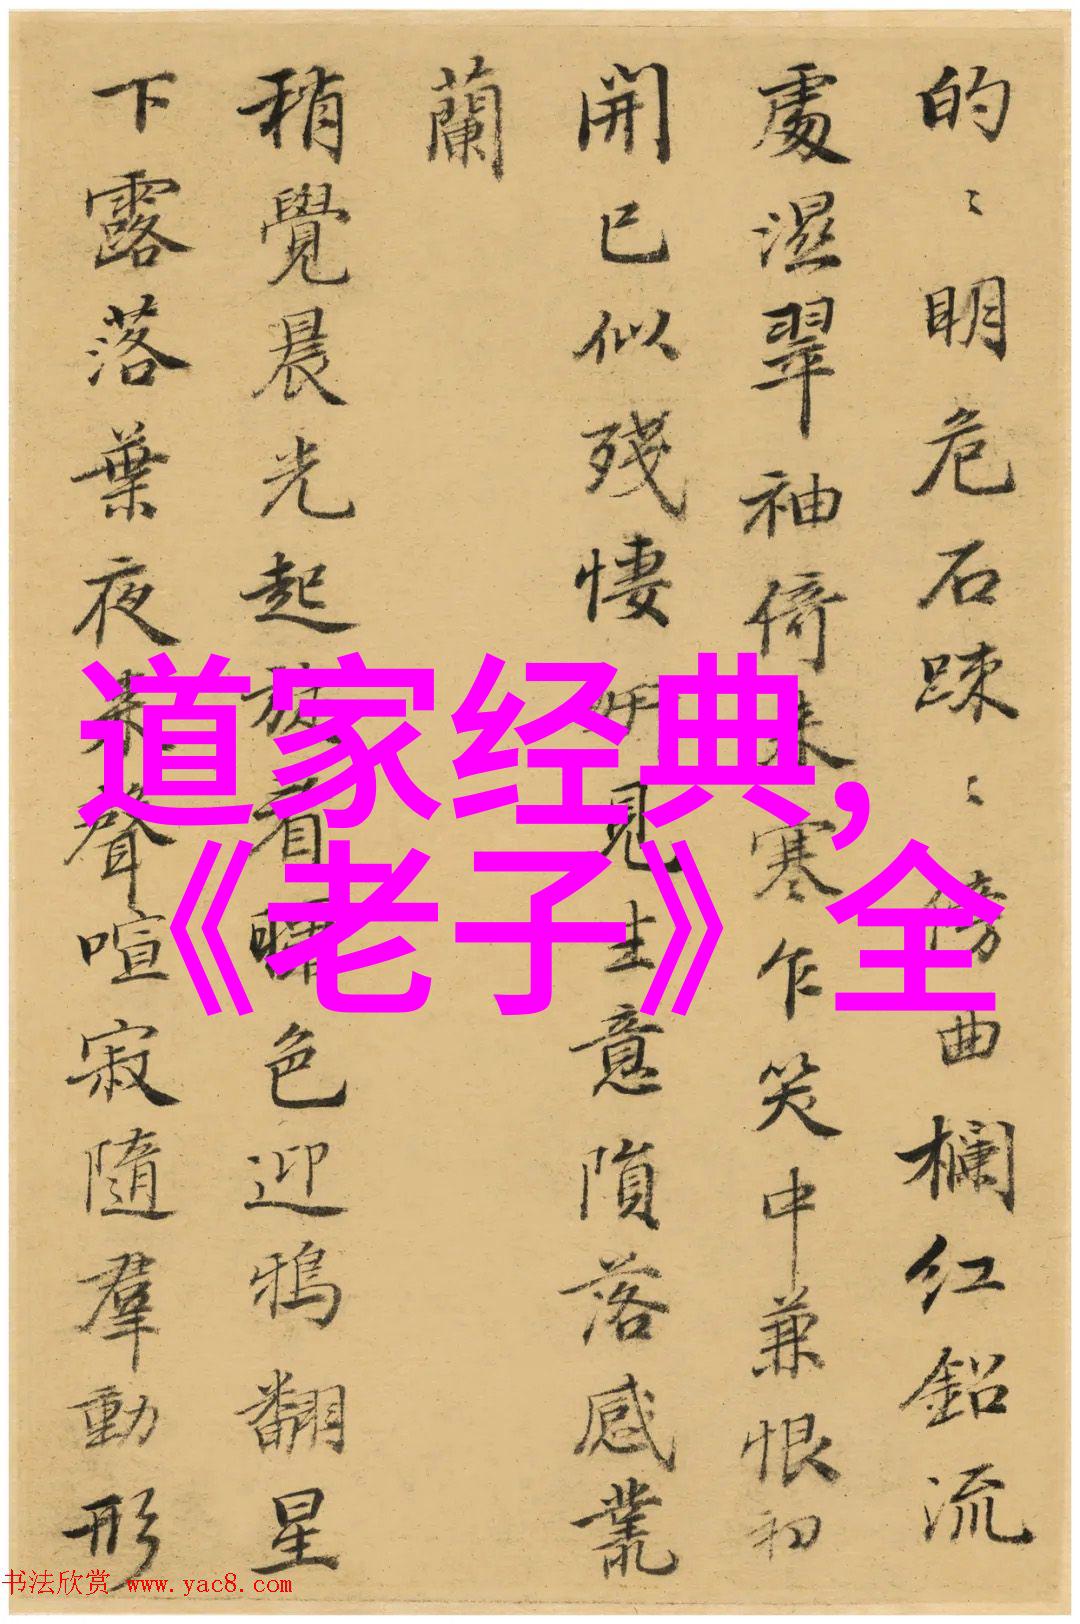 的〻明危石踈〻傍曲欄红鉛流
處濕翠袖倚来寒乍笑中兼恨初
開已似残悽
見生意隕落感叢
蘭
稍覺晨光起
看
色迎鴉翻星
下露落葉夜来聲喧寂隨羣動形
道家经典,
《老子》全
书法欣赏 www.yac8.com